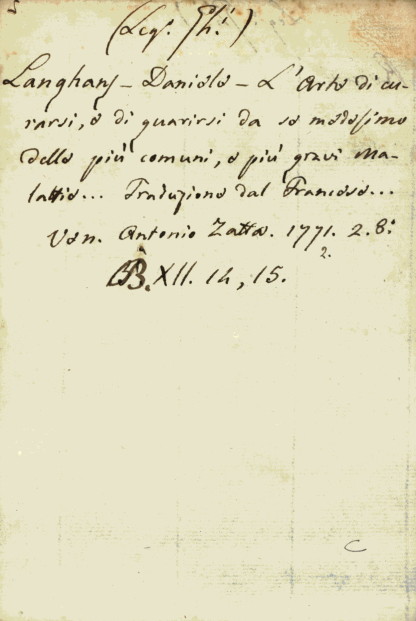 (Leg. Gh.i)
Langhans - Daniele - L'Arte di cu-
rarsi, e di guarirsi da se medesimo
delle più comuni, e più gravi Ma-
lattie... Traduzione dal Francese...
Ven. Antonio Zatta. 1771. 2. 8.
2.
B. XII. 14, 15.
C